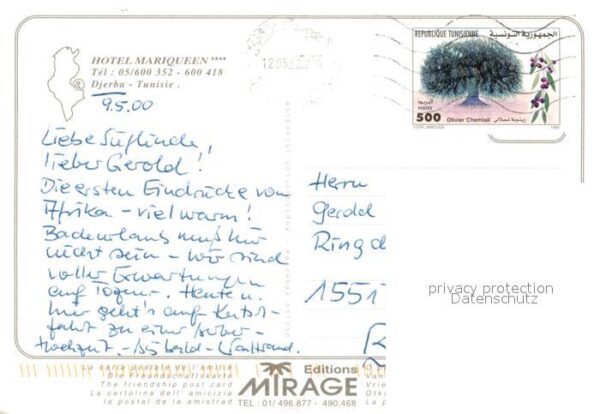 HOTEL MARIQUEEN ****
Tél : 05/600 352 - 600 418
Djerba - Tunisie .
9.5.00
Liebe
lieber Gerold!
Die ersten Eindrücke von
Afrika - viel warm!
Badeurlaub muß für
nicht sein - wir sind
voller Erwartungen
auf Tozeur. Heute
geht's auf Kutsch-
fahrt zu einer
Hochzeit. - bis bald - Waltraud.
12.05.00
REPUBLIQUE TUNISIENNE
الجمهورية التونسية
500
POSTES
البريد
Olivier Chemlali
زيتونة شملالي
Herrn
Gerold
Ring
1551
privacy protection
Datenschutz
La carte postale de l'amitié
Die Freundschaftskarte
The friendship post card
La cartolina dell' amicizia
la postal de la amistrad
Editions
MIRAGE
TEL : 01/ 496.877 - 490.468